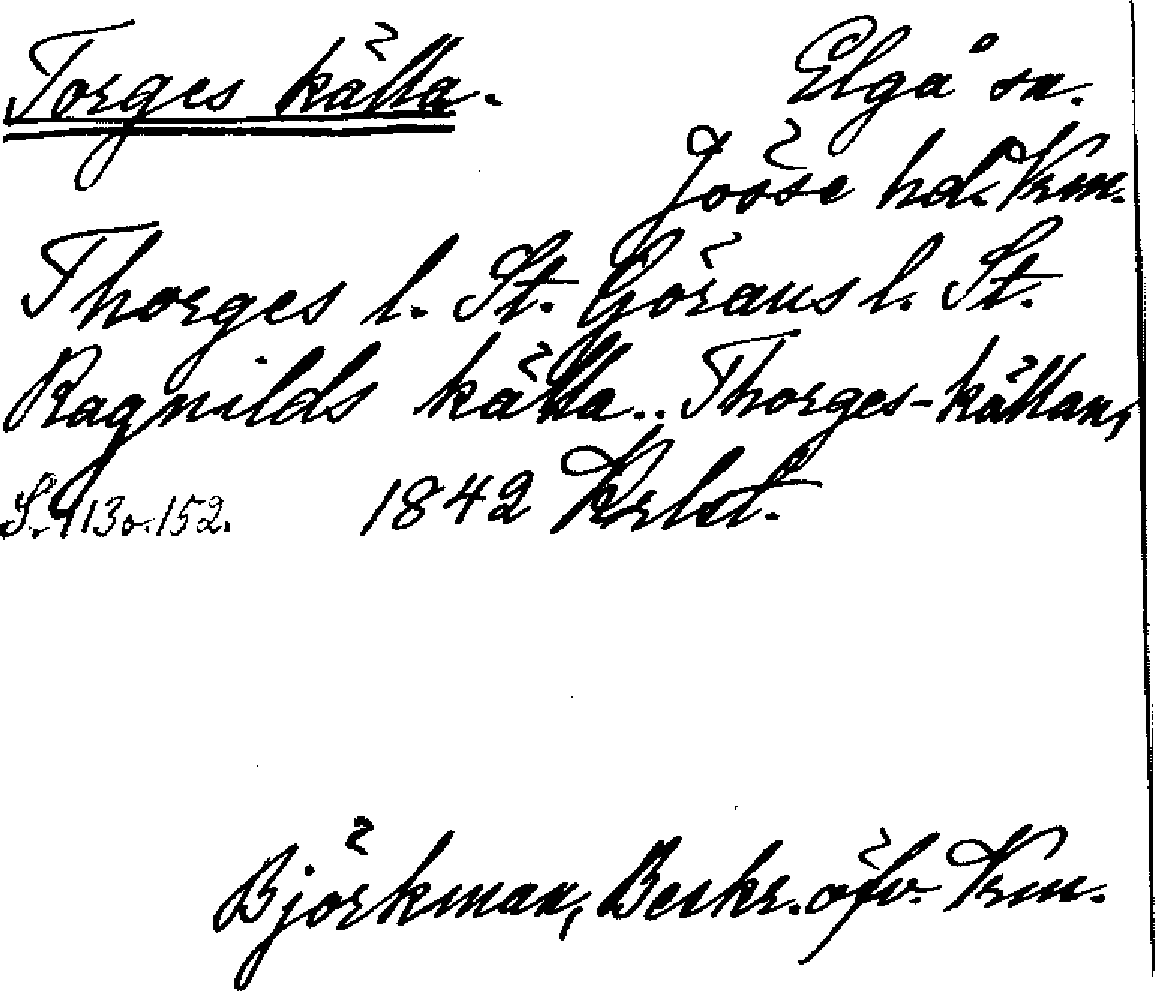 Torges källa. Elgå sn.
Jösse hd. Vrm.
Thorges l. St. Görans l. St.
Ragnilds källa.. Thorges-källan,
S. 113 o. 152. 1842 Krlst.
Björkman, Beskr. öfv. Vrm.